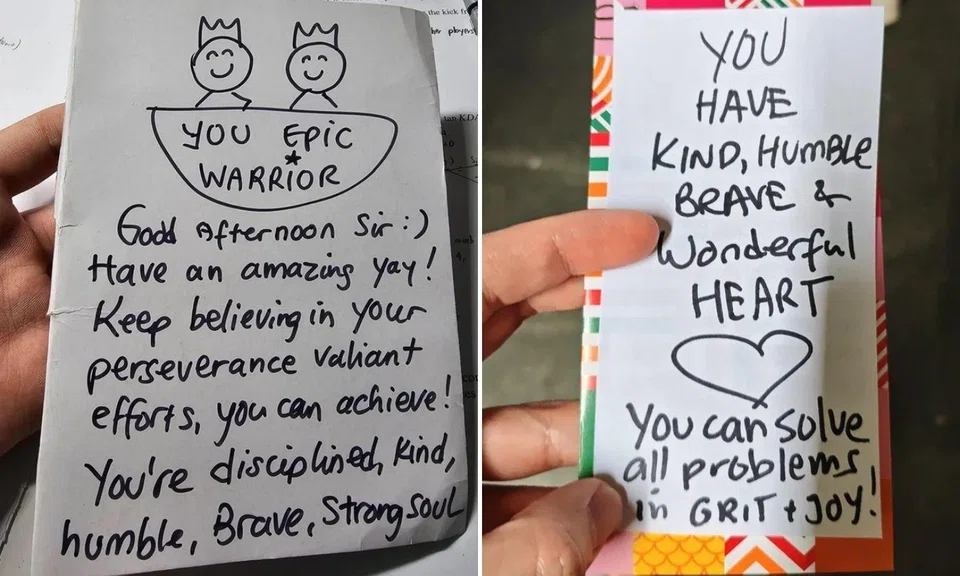 YOU EPIC
WARRIOR
Good Afternoon Sir :)
Have an amazing yay!
Keep believing in your
perseverance valiant
efforts, you can achieve!
You're disciplined, kind,
humble, Brave, Strong soul
YOU
HAVE
KIND, HUMBLE
BRAVE &
Wonderful
HEART
You can solve
all problems,
in GRIT + JOY!
the kick
players